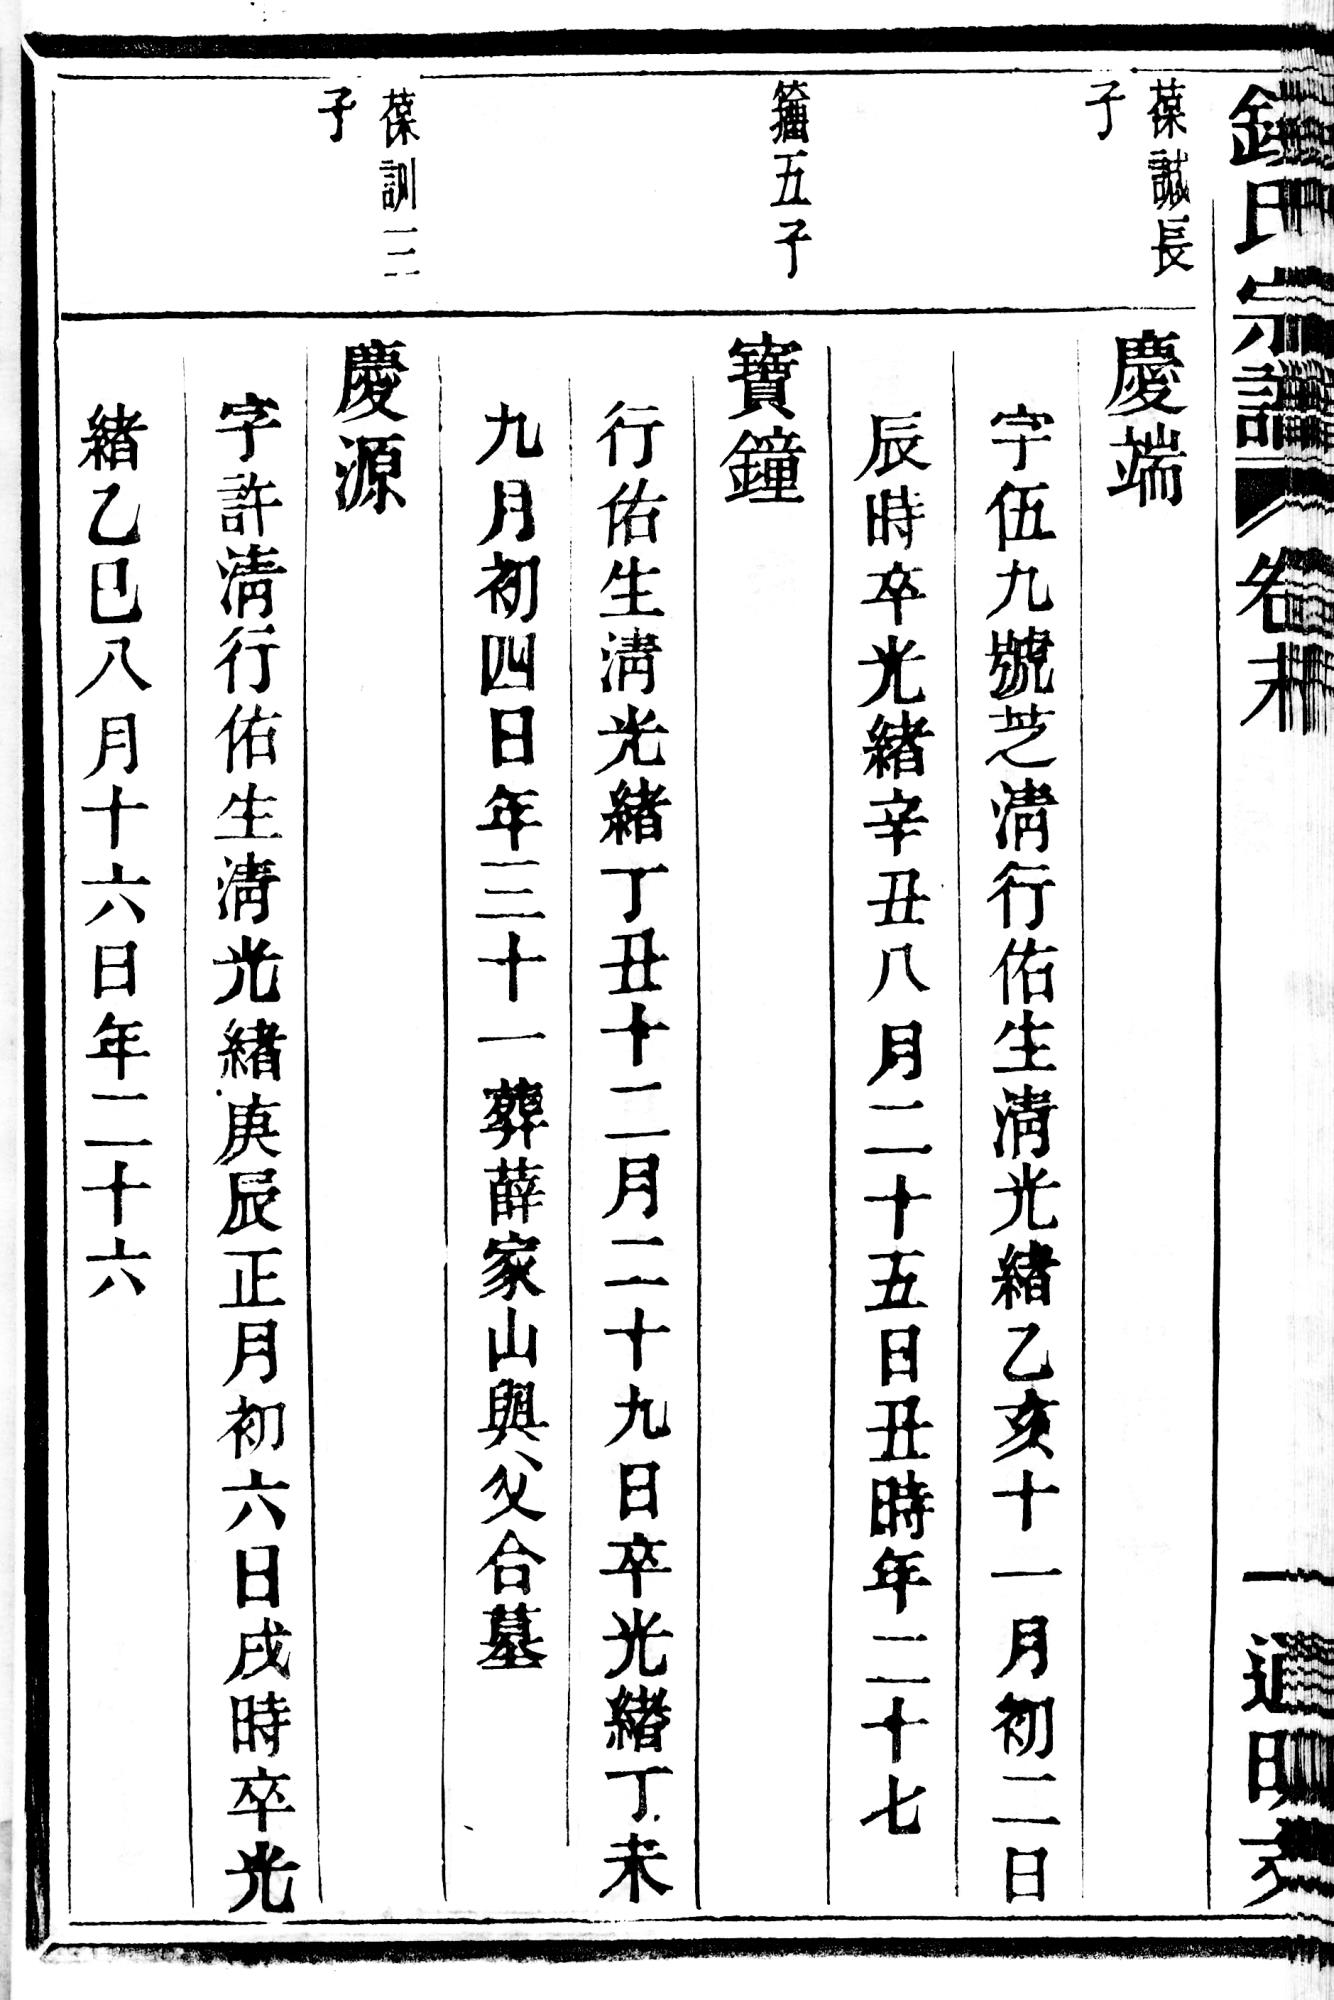 鍾氏宗譜 卷末 一 通明支
葆誠長
子
慶端
字伍九號芝淸行佑生淸光緒乙亥十一月初二日
辰時卒光緒辛丑八月二十五日丑時年二十七
籀五子
寶鐘
行佑生淸光緒丁丑十二月二十九日卒光緒丁未
九月初四日年三十一葬薛家山與父合墓
葆訓三
子
慶源
字許淸行佑生淸光緒庚辰正月初六日戌時卒光
緒乙巳八月十六日年二十六